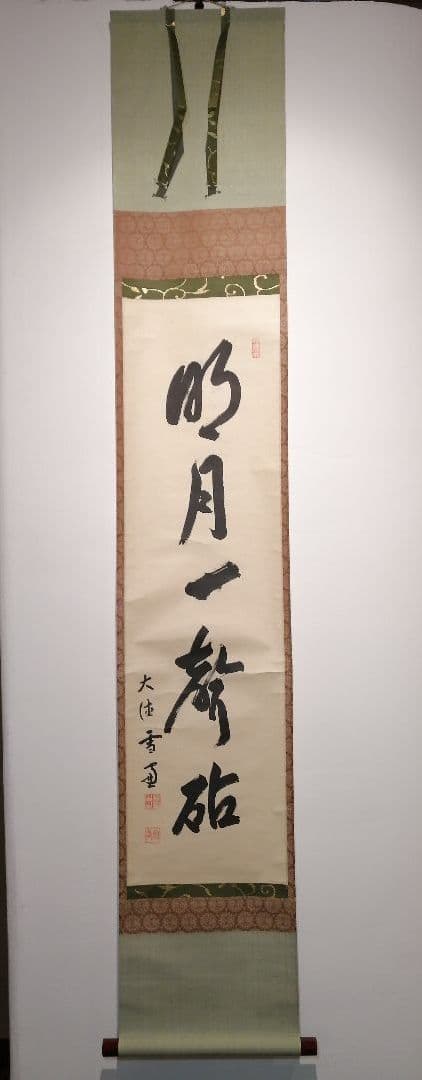 明月一聲砧
大徳雪